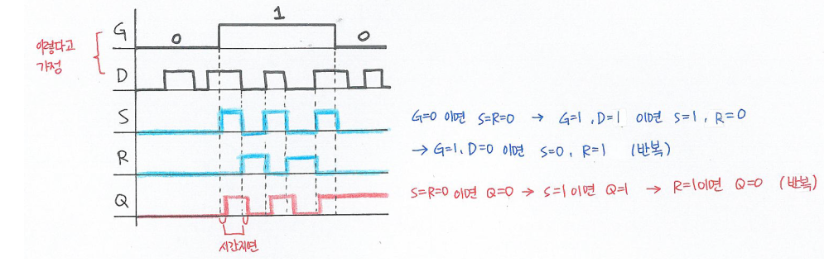 이렇다고
가정
G 0 1 0
D
S
R
Q
시간지연
G=0 이면 S=R=0 → G=1, D=1 이면 S=1, R=0
→ G=1, D=0 이면 S=0, R=1 (반복)
S=R=0 이면 Q=0 → S=1 이면 Q=1 → R=1이면 Q=0 (반복)